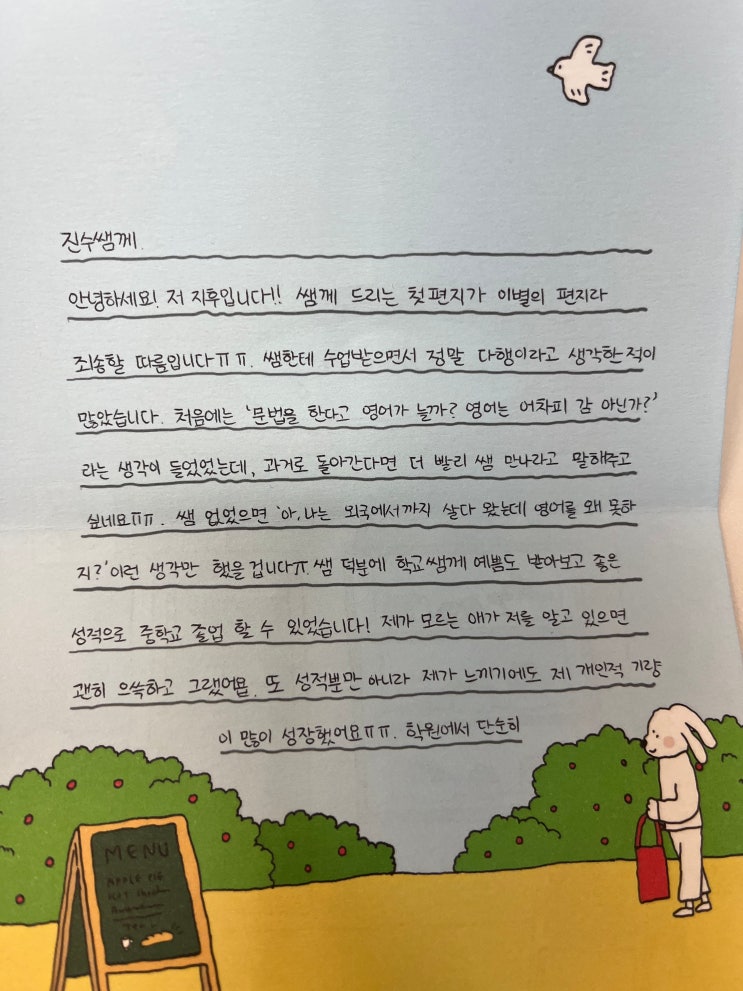 진수쌤께.
안녕하세요! 저 지후입니다!! 쌤께 드리는 첫 편지가 이별의 편지라
죄송할 따름입니다ㅠㅠ. 쌤한테 수업받으면서 정말 다행이라고 생각한 적이
많았습니다. 처음에는 '문법을 한다고 영어가 늘까? 영어는 어차피 감 아닌가?'
라는 생각이 들었었는데, 과거로 돌아간다면 더 빨리 쌤 만나라고 말해주고
싶네요ㅠㅠ. 쌤 없었으면 '아, 나는 외국에서까지 살다 왔는데 영어를 왜 못하
지?' 이런 생각만 했을 겁니다ㅠ. 쌤 덕분에 학교쌤께 예쁨도 받아보고 좋은
성적으로 중학교 졸업 할 수 있었습니다! 제가 모르는 애가 저를 알고 있으면
괜히 으쓱하고 그랬어욥. 또 성적뿐만 아니라 제가 느끼기에도 제 개인적 기량
이 많이 성장했어요ㅠㅠ. 학원에서 단순히
MENU
APPLE PIE
HOT